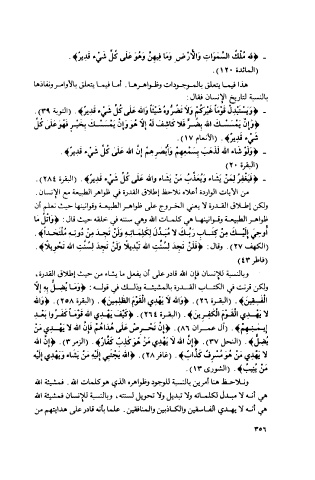 ـ ﴿لله مُلْكُ السَّمٰوَاتِ وَالأَرْضِ وَمَا فِيهِنَّ وَهُوَ عَلَى كُلِّ شَيْءٍ قَدِيرٌ﴾.
(المائدة ١٢٠).
هذا فيما يتعلق بالموجودات وظواهرها. أما فيما يتعلق بالأوامر ونفاذها
بالنسبة لتاريخ الإنسان فقال:
ـ ﴿وَيَسْتَبْدِلْ قَوْماً غَيْرَكُمْ وَلاَ تَضُرُّوهُ شَيْئاً وَالله عَلَى كُلِّ شَيْءٍ قَدِيرٌ﴾. (التوبة ٣٩).
﴿وَإِنْ يَمْسَسْكَ الله بِضُرٍّ فَلاَ كَاشِفَ لَهُ إِلاَّ هُوَ وَإِنْ يَمْسَسْكَ بِخَيْرٍ فَهُوَ عَلَى كُلِّ
شَيْءٍ قَدِيرٌ﴾. (الأنعام ١٧).
ـ ﴿وَلَوْ شَاءَ الله لَذَهَبَ بِسَمْعِهِمْ وَأَبْصَارِهِمْ إِنَّ الله عَلَى كُلِّ شَيْءٍ قَدِيرٌ﴾.
(البقرة ٢٠)
ـ ﴿فَيَغْفِرُ لِمَنْ يَشَاءُ وَيُعَذِّبُ مَنْ يَشَاءُ وَالله عَلَى كُلِّ شَيْءٍ قَدِيرٌ﴾. (البقرة ٢٨٤).
من الآيات الواردة أعلاه نلاحظ إطلاق القدرة في ظواهر الطبيعة مع الإنسان.
ولكن إطلاق القدرة لا يعني الخروج على ظواهر الطبيعة وقوانينها حيث نعلم أن
ظواهر الطبيعة وقوانينها هي كلمات الله وهي سنته في خلقه حيث قال: ﴿وَاتْلُ مَا
أُوحِيَ إِلَيْكَ مِنْ كِتَابِ رَبِّكَ لاَ مُبَدِّلَ لِكَلِمَاتِهِ وَلَنْ تَجِدَ مِنْ دُونِهِ مُلْتَحَداً﴾.
(الكهف ٢٧). وقال: ﴿فَلَنْ تَجِدَ لِسُنَّتِ الله تَبْدِيلاً وَلَنْ تَجِدَ لِسُنَّتِ الله تَحْوِيلاً﴾.
(فاطر ٤٣)
وبالنسبة للإنسان فإن الله قادر على أن يفعل ما يشاء من حيث إطلاق القدرة،
ولكن قرنت في الكتاب القدرة بالمشيئة وذلك في قوله: ﴿وَمَا يُضِلُّ بِهِ إِلاَّ
الْفَاسِقِينَ﴾. (البقرة ٢٦). ﴿وَالله لاَ يَهْدِي الْقَوْمَ الظَّالِمِينَ﴾. (البقرة ٢٥٨). ﴿وَالله
لاَ يَهْدِي الْقَوْمَ الْكَافِرِينَ﴾. (البقرة ٢٦٤). ﴿كَيْفَ يَهْدِي الله قَوْماً كَفَرُوا بَعْدَ
إِيمَانِهِمْ﴾. (آل عمران ٨٦). ﴿إِنْ تَحْرِصْ عَلَى هُدَاهُمْ فَإِنَّ الله لاَ يَهْدِي مَنْ
يُضِلُّ﴾. (النحل ٣٧). ﴿إِنَّ الله لاَ يَهْدِي مَنْ هُوَ كَاذِبٌ كَفَّارٌ﴾. (الزمر ٣). ﴿إِنَّ الله
لاَ يَهْدِي مَنْ هُوَ مُسْرِفٌ كَذَّابٌ﴾. (غافر ٢٨). ﴿الله يَجْتَبِي إِلَيْهِ مَنْ يَشَاءُ وَيَهْدِي إِلَيْهِ
مَنْ يُنِيبُ﴾. (الشورى ١٣).
ونلاحظ هنا أمرين بالنسبة للوجود وظواهره الذي هو كلمات الله. فمشيئة الله
هي أنه لا مبدل لكلماته ولا تبديل ولا تحويل لسنته، وبالنسبة للإنسان فمشيئة الله
هي أنه لا يهدي الفاسقين والكاذبين والمنافقين. علما بأنه قادر على هدايتهم من
٣٥٦